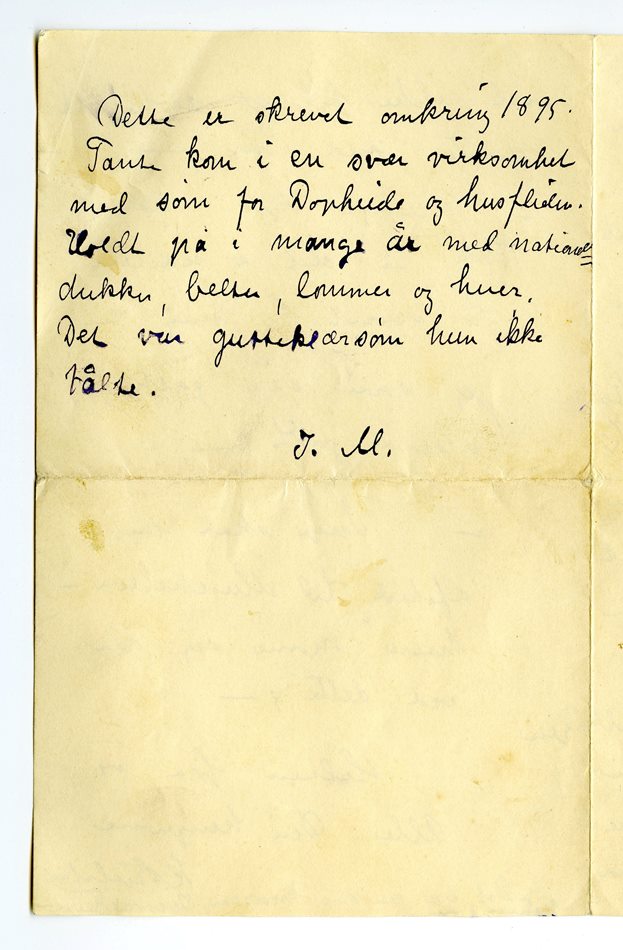 Dette er skrevet omkring 1895.
Tante kom i en svær virksomhet
med søm for Dopheide og husfliden.
Holdt på i mange år med national=
dukker, belter, lommer og huer.
Det var gutteklærsøm hun ikke
tålte.
I. M.